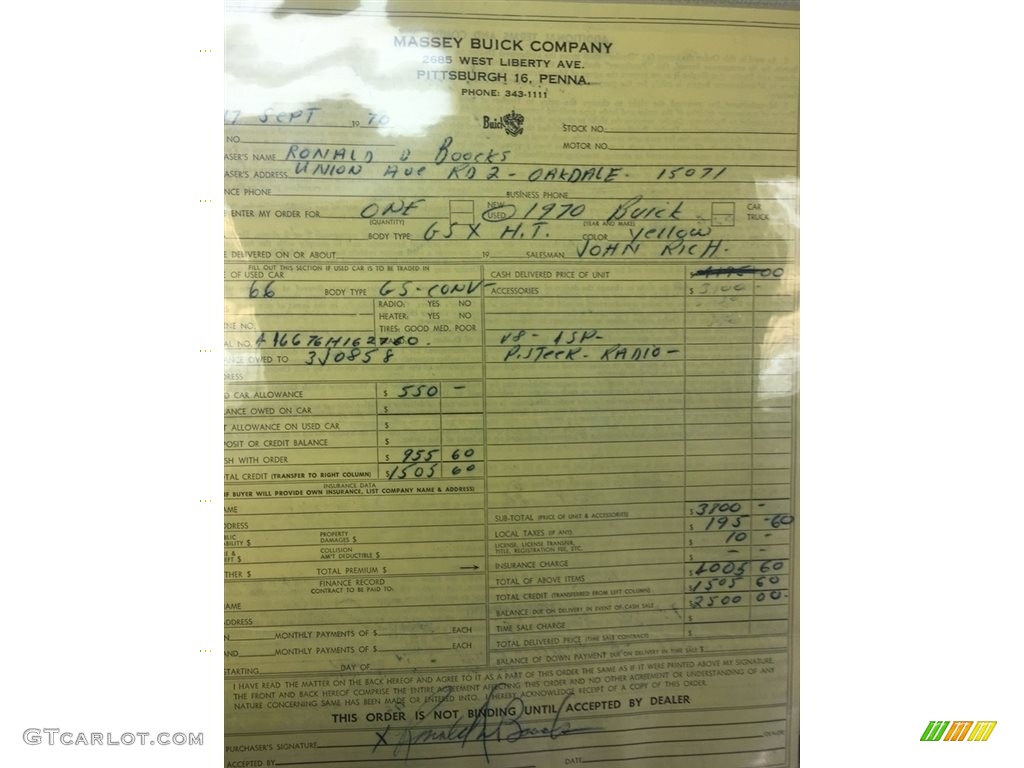 MASSEY BUICK COMPANY
2685 WEST LIBERTY AVE.
PITTSBURGH 16, PENNA.
PHONE: 343-1111
17 SEPT 19 70
Buick
STOCK NO.
NO.
MOTOR NO.
ASER'S NAME RONALD D Boocks
ASER'S ADDRESS UNION Ave RD 2 - OAKDALE - 15071
NCE PHONE BUSINESS PHONE
E ENTER MY ORDER FOR ONE NEW USED 1970 Buick CAR TRUCK
(QUANTITY) (YEAR AND MAKE)
BODY TYPE GSX H.T. COLOR yellow
E DELIVERED ON OR ABOUT 19 SALESMAN JOHN RICH.
FILL OUT THIS SECTION IF USED CAR IS TO BE TRADED IN
E OF USED CAR CASH DELIVERED PRICE OF UNIT 00
66 BODY TYPE GS-CONV- ACCESSORIES $
RADIO: YES NO
HEATER: YES NO
NE NO. TIRES: GOOD MED. POOR
AL NO. V8 - 4SP-
ANCE OWED TO 3J0858 P.Steer - RADIO -
RESS
D CAR ALLOWANCE $ 550 -
LANCE OWED ON CAR $
T ALLOWANCE ON USED CAR $
POSIT OR CREDIT BALANCE $
SH WITH ORDER $ 955 60
OTAL CREDIT (TRANSFER TO RIGHT COLUMN) $ 1505 60
INSURANCE DATA
IF BUYER WILL PROVIDE OWN INSURANCE, LIST COMPANY NAME & ADDRESS)
AME
SUB-TOTAL (PRICE OF UNIT & ACCESSORIES) $ 3800 -
DDRESS
LOCAL TAXES (IF ANY) $ 195 -60
BLIC ABILITY $ PROPERTY DAMAGES $
LICENSE, LICENSE TRANSFER, TITLE, REGISTRATION FEE, ETC. $ 10 -
E & EFT $ COLLISION AM'T DEDUCTIBLE $
INSURANCE CHARGE $ - -
THER $ TOTAL PREMIUM $
TOTAL OF ABOVE ITEMS $ 4005 60
FINANCE RECORD
CONTRACT TO BE PAID TO:
TOTAL CREDIT (TRANSFERRED FROM LEFT COLUMN) $ 1505 60
AME
BALANCE DUE ON DELIVERY IN EVENT OF CASH SALE $ 2500 00-
DDRESS
TIME SALE CHARGE $
N MONTHLY PAYMENTS OF $ EACH
TOTAL DELIVERED PRICE (TIME SALE CONTRACT) $
AND MONTHLY PAYMENTS OF $ EACH
BALANCE OF DOWN PAYMENT DUE ON DELIVERY IN TIME SALE $
STARTING DAY OF
I HAVE READ THE MATTER ON THE BACK HEREOF AND AGREE TO IT AS A PART OF THIS ORDER THE SAME AS IF IT WERE PRINTED ABOVE MY SIGNATURE.
THE FRONT AND BACK HEREOF COMPRISE THE ENTIRE AGREEMENT AFFECTING THIS ORDER AND NO OTHER AGREEMENT OR UNDERSTANDING OF ANY
NATURE CONCERNING SAME HAS BEEN MADE OR ENTERED INTO. I HEREBY ACKNOWLEDGE RECEIPT OF A COPY OF THIS ORDER.
THIS ORDER IS NOT BINDING UNTIL ACCEPTED BY DEALER
PURCHASER'S SIGNATURE X Ronald D Boocks
DEALER
ACCEPTED BY DATE
GTCARLOT.COM